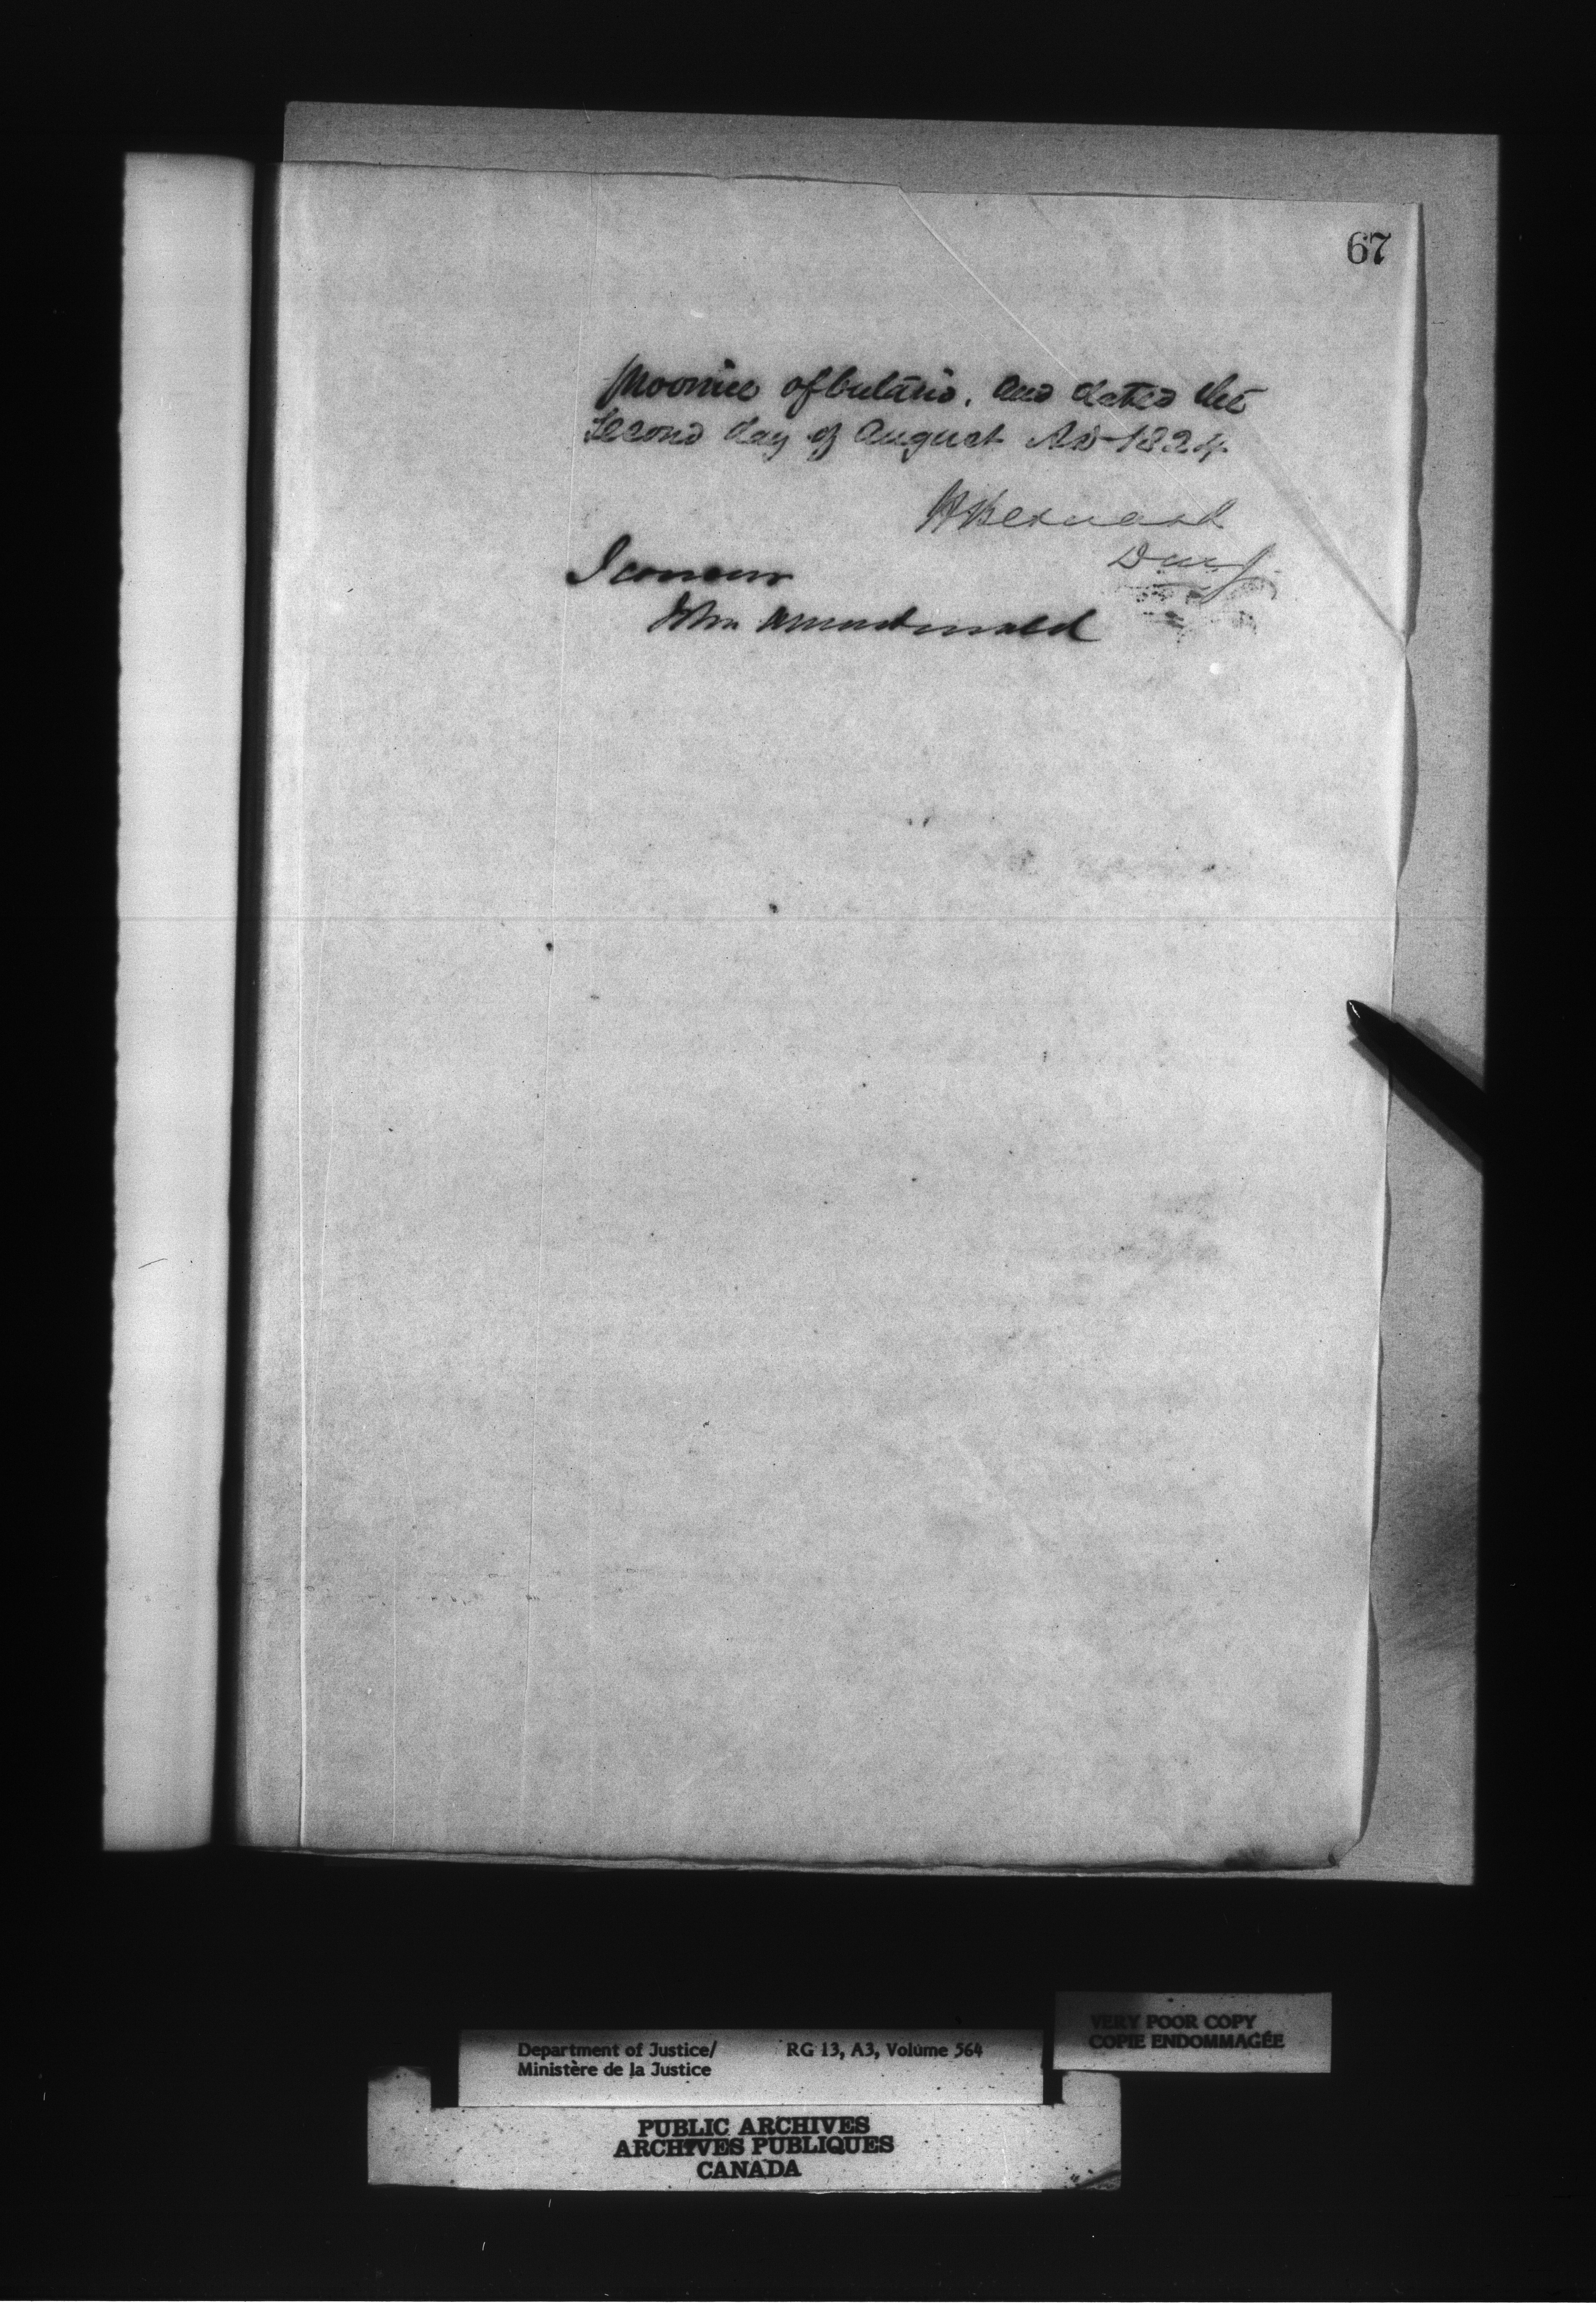 67
Province of Ontario. and dated the
Second day of August AD 1824
H Bernard
D M J
I concur
John A Macdonald
Department of Justice/ RG 13, A3, Volume 564
Ministère de la Justice
VERY POOR COPY
COPIE ENDOMMAGÉE
PUBLIC ARCHIVES
ARCHIVES PUBLIQUES
CANADA